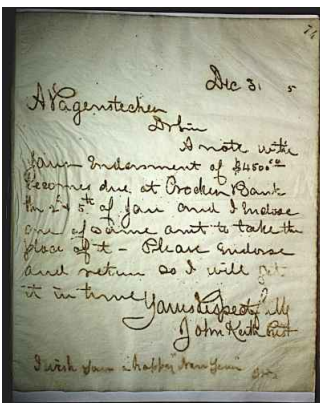 Dec 31 5
A Pagenstecher
Dr Sir
A note with
your Endorsement of $4500.00
becomes due at Brocken Bank
the 2d & 5th of Jan and I Endose
one of same amt to take the
place of it - Please Endorse
and return so I will get
it in time
Yours Respectfully
John Keith
I wish you a happy New Year